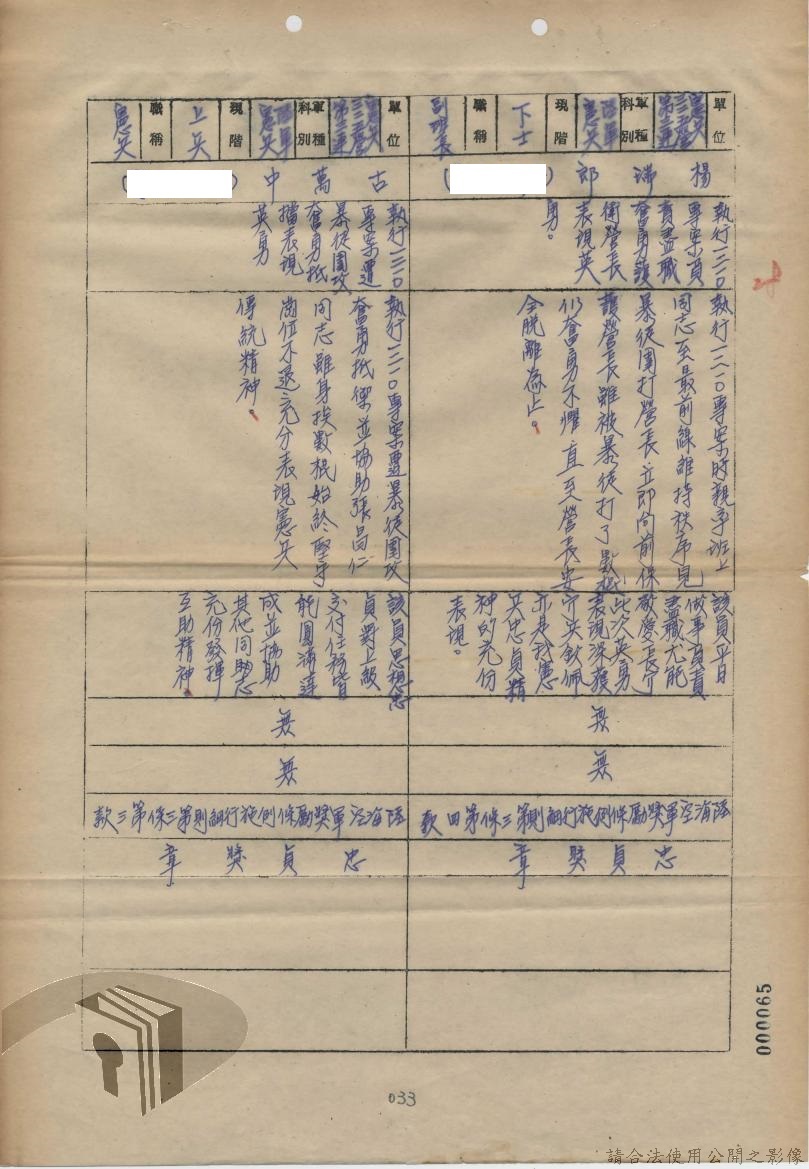 單位
憲兵
第
營
連
軍種
科別
陸軍
憲兵
現階
下士
職稱
副班長
楊沸郎
(
)
執行一二一〇
專案員
責盡職
奮勇護
衛營長
表現英
勇。
執行一二一〇專案時親率班上
同志至最前線維持秩序見
暴徒圍打營長立即向前保
護營長雖被暴徒打了數棍
仍奮勇不懼直至營長安
全脫離為止。
該員平日
做事負責
盡職尤能
敬愛長官
此次英勇
表現深獲
官兵欽佩
亦是我憲
兵忠貞精
神的充份
表現。
無
無
陸海空軍獎勵條例施行細則第三條第四款
忠貞獎章
單位
憲兵
第
營
連
軍種
科別
陸軍
憲兵
現階
上兵
職稱
憲兵
古萬中
(
)
執行一二一〇
專案遭
暴徒圍攻
奮勇抵
擋表現
英勇
執行一二一〇專案遭暴徒圍攻
奮勇抵禦並協助張昌仁
同志雖身挨數棍始終堅守
崗位不退充分表現憲兵
傳統精神。
該員思想忠
貞對上級
交付任務皆
能圓滿達
成並協助
其他同志
充份發揮
互助精神。
無
無
陸海空軍獎勵條例施行細則第三條第三款
忠貞獎章
000065
033
請合法使用公開之影像